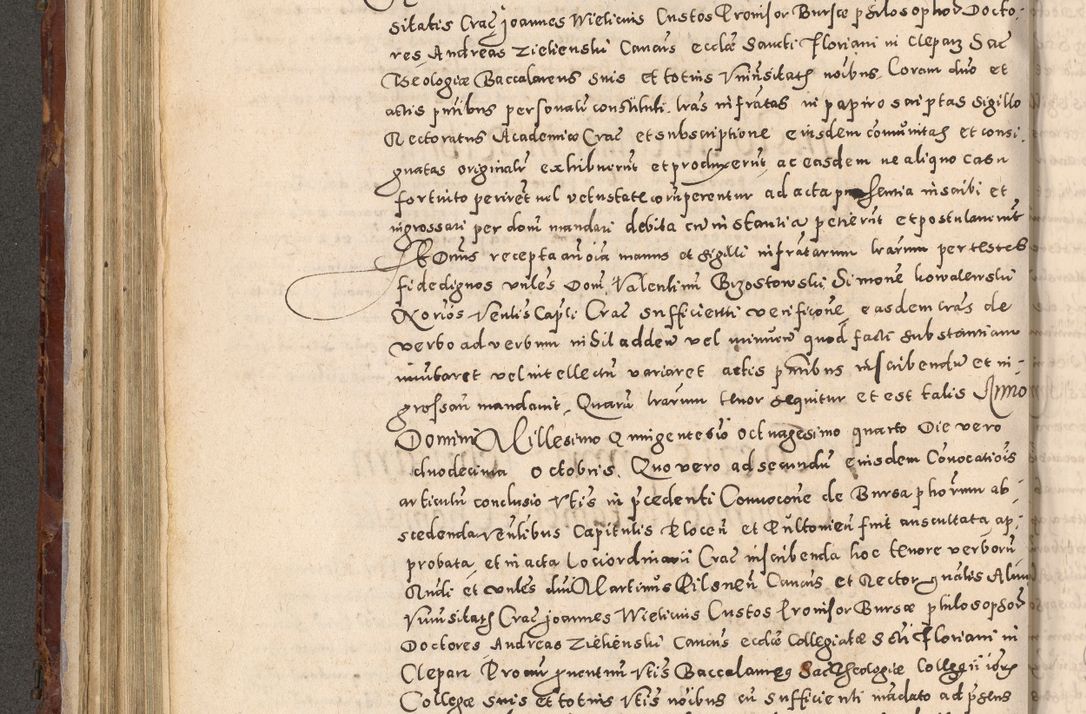 sitatis Crac̃ Joannes Wielicius Custos Prouisor Bursæ philosophor̃ Docto-
res Andreas Zielienski Canc̃us eccl̃iæ Sancti Floriani in Clepar̃ Sac̃
Theologiæ Baccalareus suis et totius Vniu̇sitatis no̅ibus. Coram d̃no et
actis p̃ntibus personal̃r constituti. l̃ras infra̅tas in papiro scriptas sigillo
Rectoratus Academiæ Crac̃ et subscriptione eiusdem com̃unitatis et consi-
gnatas original̃r exhibuerũt et produxerũt ac easdem ne aliquo casu
fortuito perirẽt uel vetustate corũperentur ad acta præsentia inscribi et
ingrossari per dom̃ mandari debita cum instantia petierũt et postulauerũt
Et D̃nus recepta au̅oia manus et sigilli infratarum l̃rarum per testes
fidedignos vñles Dom̃ Valentinũ Brzostowski Simonẽ Kowalewski
No̅rios Ven̅lis Cap̃li Crac̃ sufficienti verific̃one, easdem l̃ras de
verbo ad verbum nihil addẽn vel minuẽn quod facti substantiam
immutaret vel intellectũ variaret actis p̃ntibus inscribendũ et in-
grossari mandauit. Quarũ l̃rarum tenor sequitur et est talis Anno
Domini Millesimo Quingentesio octuagesimo quarto Die vero
duodecima Octobris. Quo vero ad secundũ eiusdem Conuocatiõis
articulũ conclusio v̅tis in p̃cedenti Conuoc̃one de Bursa ph̃orum ab-
scedenda Ven̅libus Capitulis Plocen̅ et Pultouien̅ fuit auscultata, ap-
probata, et in acta Loci ordinarii Crac̃ inscribenda hoc tenore verborũ
Nudi et vñles d̃ni Martinus Pilsnen̅ Canc̃us et Rector g̃nalis Almæ
Vniu̇sitatis Crac̃ Joannes Wielicius Custos Prouisor Bursæ philosophor̃
Doctores Andreas Zielienski Canc̃us eccl̃iæ Collegiatæ S̃cti Floriani in
Clepar̃ Procur̃ q̃uentuũ v̅tis Baccalareus Sac̃ Theologiæ Collegii iõris
Collegæ suis et totius v̅tis no̅ibus cũ sufficienti mãdato ad p̃sens